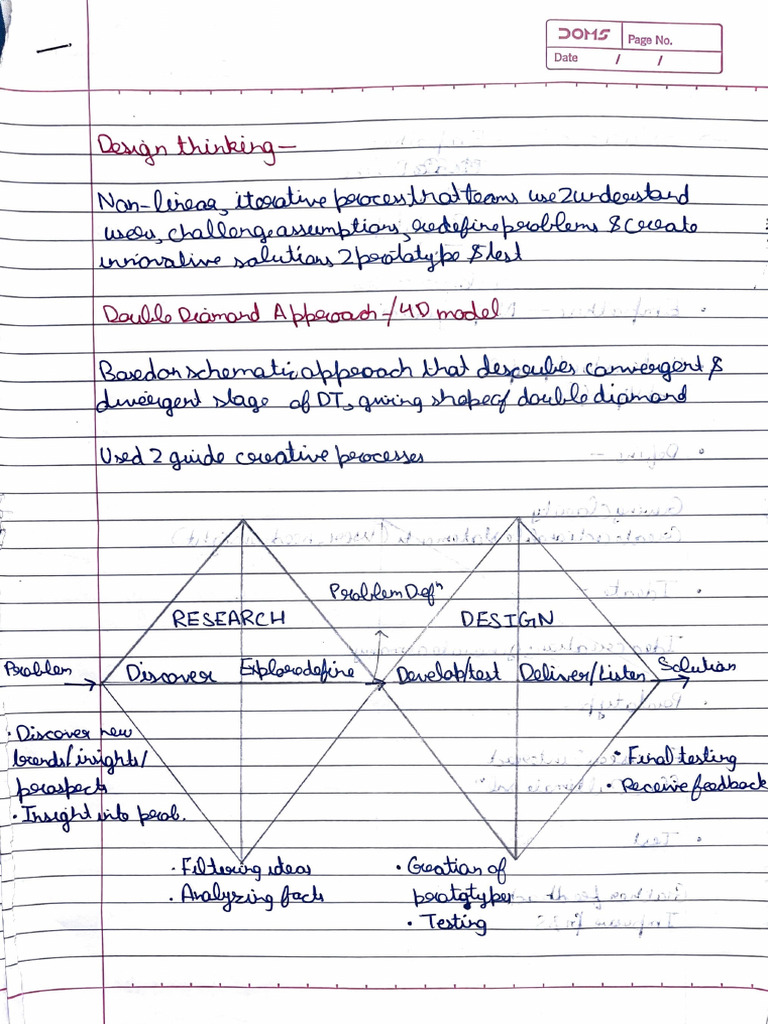 DOMS
Page No.
Date / /
Design thinking-
Non-linear, iterative process that teams use 2 understand
users, challenge assumptions, redefine problems & create
innovative solutions 2 prototype & test
Double Diamond Approach-/4D model
Based on schematic approach that describes convergent &
divergent stage of DT, giving shape of double diamond
Used 2 guide creative processes
Problem Defⁿ
RESEARCH
DESIGN
Problem
Discover
Explore define
Develop/test
Deliver/Listen
Solution
• Discover new
trends/insights/
prospects
• Insight into prob.
• Final testing
• Receive feedback
• Filtering ideas
• Analyzing facts
• Creation of
prototypes
• Testing